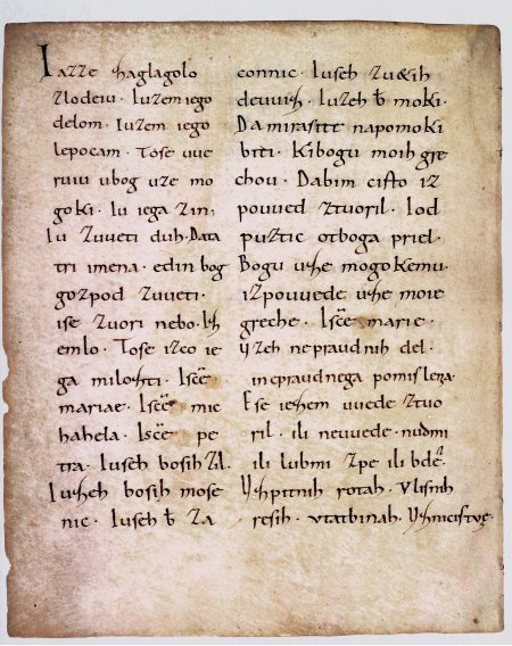 Iazze zaglagolo
zlodeiu. Iuzem iego
delom. Iuzem iego
lepocam. Tose uue
ruiu ubog uze mo
goki. Iu iega zin,
Iu zuueti duh. Da ta
tri imena. edin bog
gozpod zuueti.
ise zuori nebo. Iz
emlo. Tose izco ie
ga milozti. Isc̄ē
mariae. Isc̄ē mic
hahela. Isc̄ē pe
tra. Iuseh bosih zil.
Iuzeh bosih mose
nic. Iuseh b̄ za
connic. Iuseh zu&ih
deuuiz. Iuzeh b̄ moki.
Da mirasite napomoki
biti. Kibogu moih gre
chou. Dabim cisto iz
pouued ztuoril. Iod
puztic otboga priel.
Bogu uze mogokemu.
izpouuede uze moie
greche. Isc̄ē marie.
uzeh nepraudnih del.
inepraudnega pomislena.
Ese iezem uuede ztuo
ril. ili neuuede. nudmi
ili lubmi zpe ili bde.
Uzpitnih rotah. Vlisnih
resih. vtatbinah. Uznicistve.